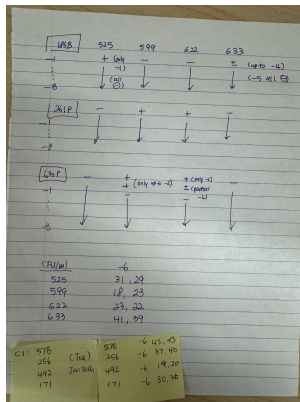 525 599 622 633
-1 + (only -1) - - ± (up to -4)
(all ⊖) (-5 all ⊖)
-8
261P - + + -
-1
-8
- + + (only -1) -
-1 + (only up to -2) ±
- -
-8
CFU/ml -6
525 31, 29
599 18, 23
622 23, 22
633 41, 39
C1: 578
256 (Tue)
492 Jan 30th
171
578 -6 43, 43
256 -6 37, 40
492 -6 19, 20
171 -6 30, 36